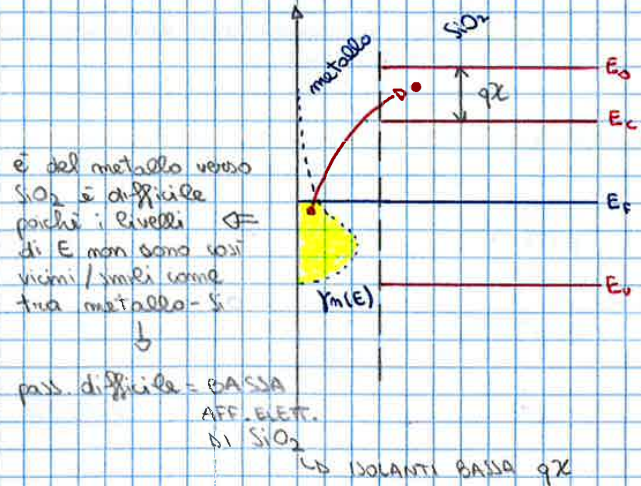 SiO2
metallo
E0
qχ
EC
e⁻ del metallo verso
SiO2 è difficile
poichè i livelli ⇐
EF
di E non sono così
vicini / simili come
tra metallo-Si
γn(E)
EV
↓
pass. difficile = BASSA
AFF. ELETT.
DI SiO2
↳ ISOLANTI BASSA qχ